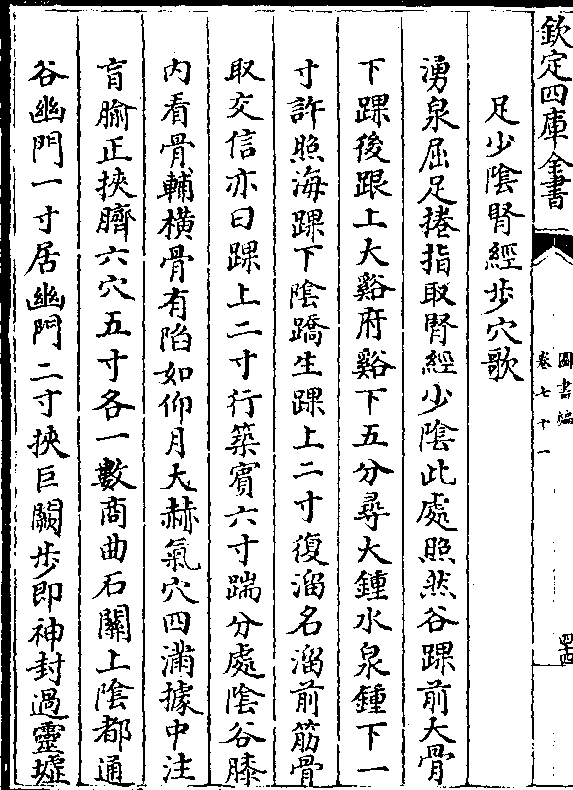 欽定四庫全書
圖書編
卷七十一
足少陰腎經步穴歌
湧泉屈足捲指取腎經少陰此處照然谷踝前大骨
下踝後跟上大谿府谿下五分尋大鍾水泉鍾下一
寸許照海踝下陰蹻生踝上二寸復溜名溜前筋骨
取交信亦曰踝上二寸行築賓六寸踹分處陰谷膝
內看骨輔橫骨有陷如仰月大赫氣穴四滿據中注
肓腧正挾臍六穴五寸各一數商曲石關上陰都通
谷幽門一寸居幽門二寸挾巨闕步郎神封過靈墟